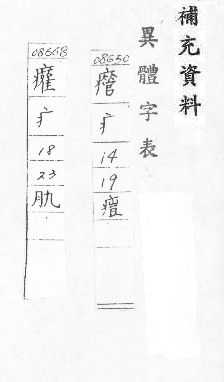 補充資料
異體字表
08650
疒
14
19
08668
疒
18
23
肍